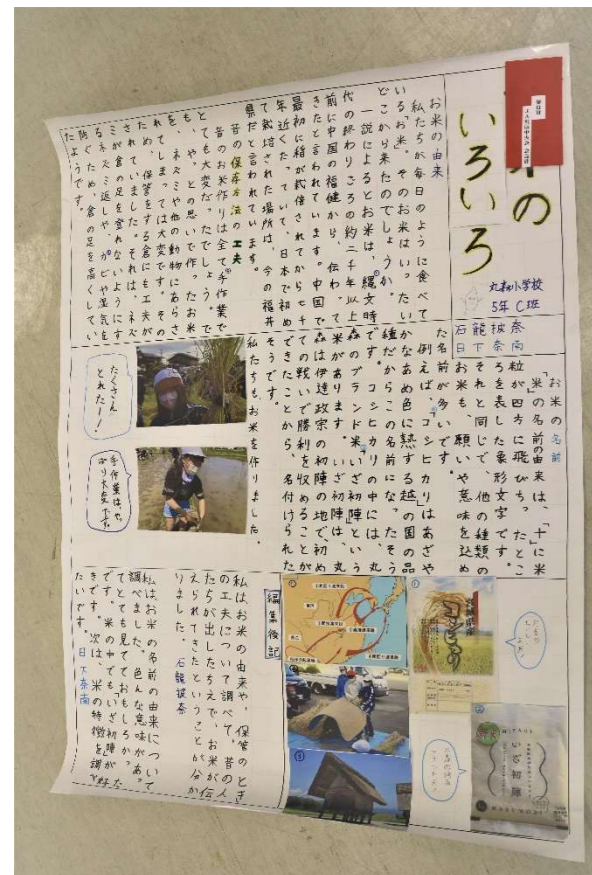 米の
いろいろ
丸森小学校
5年C班
石龍被奈
日下奈南
お米の由来
私たちが毎日のように食べて
いる「お米」。そのお米はいったい
どこから来たのでしょうか。
一説によるとお米は、縄文時
代の終わりごろの約三千年以上
前に中国の福健から、伝わって
きたと言われています。中国で
最初に稲が栽倍されてから七千
年近くたっていて、日本で初め
て栽培された場所は、今の福井
県だと言われています。
昔の保存方法の工夫
昔のお米作りは全て手作業で
とても大変だったでしょう。で
も、やっとの思いで作ったお米
を、ネズミや他の動物にあらさ
れてしまっては大変です。その
ため、保管をする倉にも工夫が
されていました。それは、ネズ
ミが倉の足を登れないようにす
るネズミ返しや、カビや湿気を
防ぐため、倉の足を高くしてい
たようです。
お米の名前
「米」の名前の由来は、「十」に米
粒が四方に飛びちったとこ
ろを表した象形文字です。
それと同じで、他の種類の
お米も、願いや意味を込め
た名前が多いです。
例えば、コシヒカリはあざや
かなあめ色に熟する越の国の品
種だからこの名前になったそう
です。コシヒカリの中には、丸
森のブランド米「いざ初陣」という
米があります。いざ初陣は、丸
森は伊達政宗の初陣の地で初め
ての戦いで勝利を収めることが
できたことから、名付けられた
そうです。
私たちも、お米を作りました。
たくさん
とれたー!
手作業は、やっ
ぱり大変です。
コシヒカリ
いざ初陣
編集後記
私は、お米の由来や、保管のとき
の工夫について調べて、昔の人
たちが出したちえで、お米が伝
えられてきたということが分か
りました。 石龍被奈
私は、お米の名前の由来について
調べました。色んな意味があっ
てとても見てておもしろかった
です。米の中でも「いざ初陣」が好
きです。次は、米の特徴を調べ
たいです。日下奈南